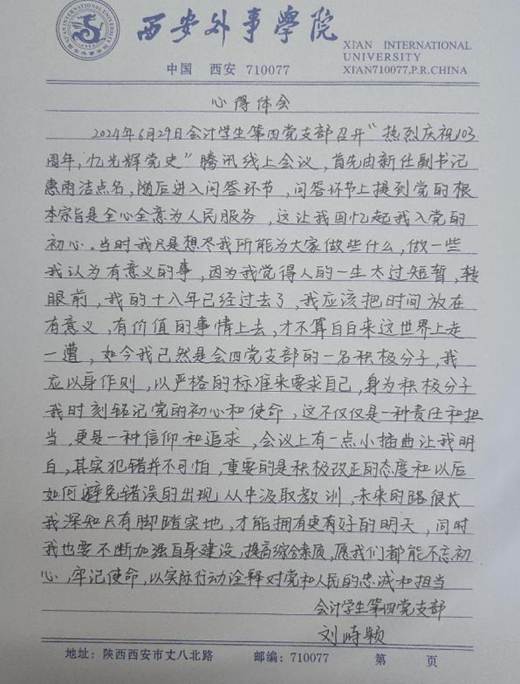 西安外事学院
XIAN INTERNATIONAL
UNIVERSITY
中国 西安 710077
XIAN710077,P.R.CHINA
心得体会
2024年6月29日会计学生第四党支部召开“热烈庆祝103
周年,忆光辉党史”腾讯线上会议,首先由新任副书记
惠雨洁点名,随后进入问答环节,问答环节上提到党的根
本宗旨是全心全意为人民服务,这让我回忆起我入党的
初心。当时我只是想尽我所能为大家做些什么,做一些
我认为有意义的事,因为我觉得人的一生太过短暂,转
眼前,我的十八年已经过去了,我应该把时间放在
有意义,有价值的事情上去,才不算白白来这世界上走
一遭,如今我已然是会四党支部的一名积极分子,我
应以身作则,以严格的标准来要求自己,身为积极分子
我时刻铭记党的初心和使命,这不仅仅是一种责任和担
当,更是一种信仰和追求,会议上有一点小插曲让我明
白,其实犯错并不可怕,重要的是积极改正的态度和以后
如何避免错误的出现从中汲取教训,未来的路很长
我深知只有脚踏实地,才能拥有更有好的明天,同时
我也要不断加强自身建设,提高综合素质,愿我们都能不忘初
心,牢记使命,以实际行动诠释对党和人民的忠诚和担当
会计学生第四党支部
刘诗颖
地址:陕西西安市丈八北路 邮编:710077 第 页